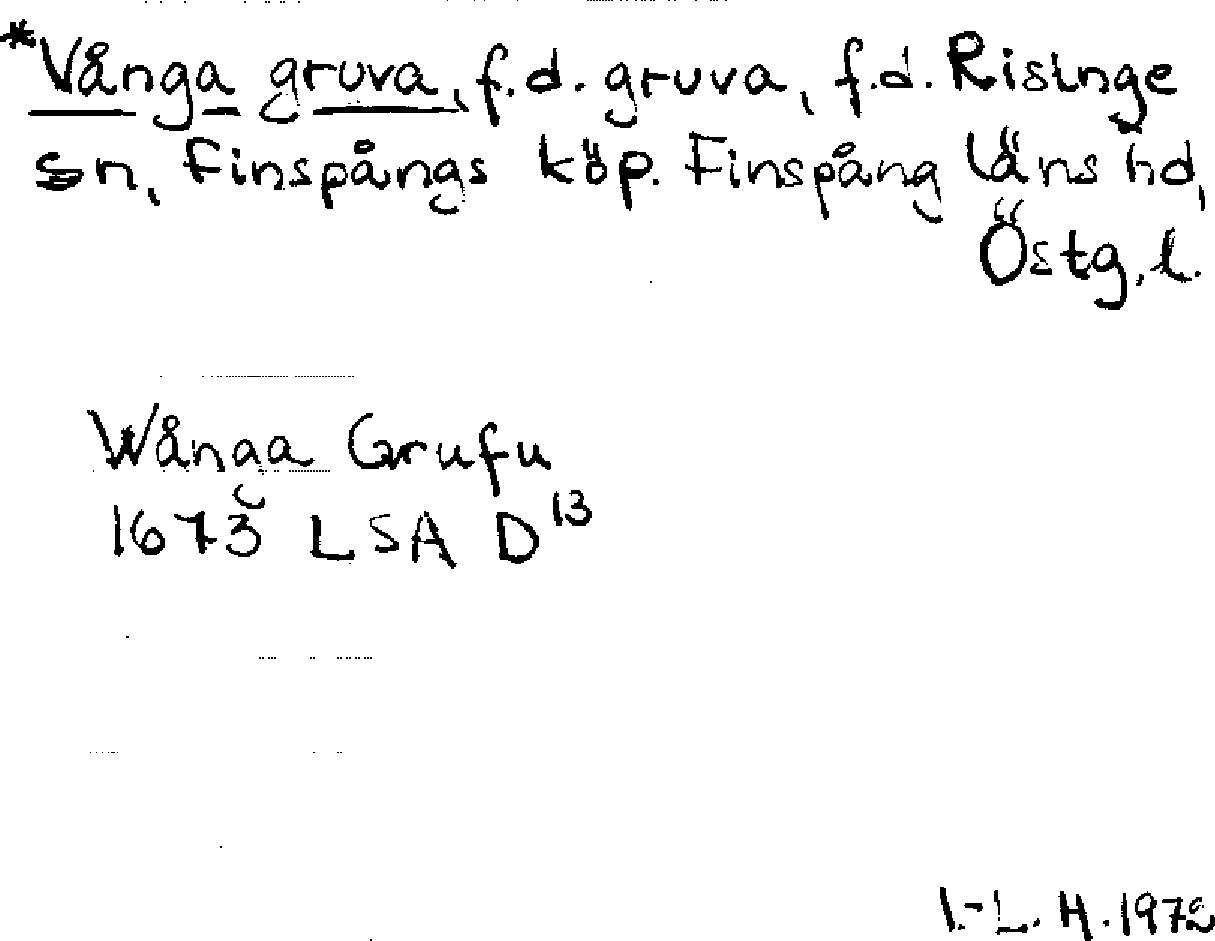 *Vånga gruva, f.d. gruva, f.d. Risinge
sn, Finspångs köp. Finspång läns hd,
Östg. l.
Wånga Grufu
1673 LSA D¹³
I.-L. H. 1972